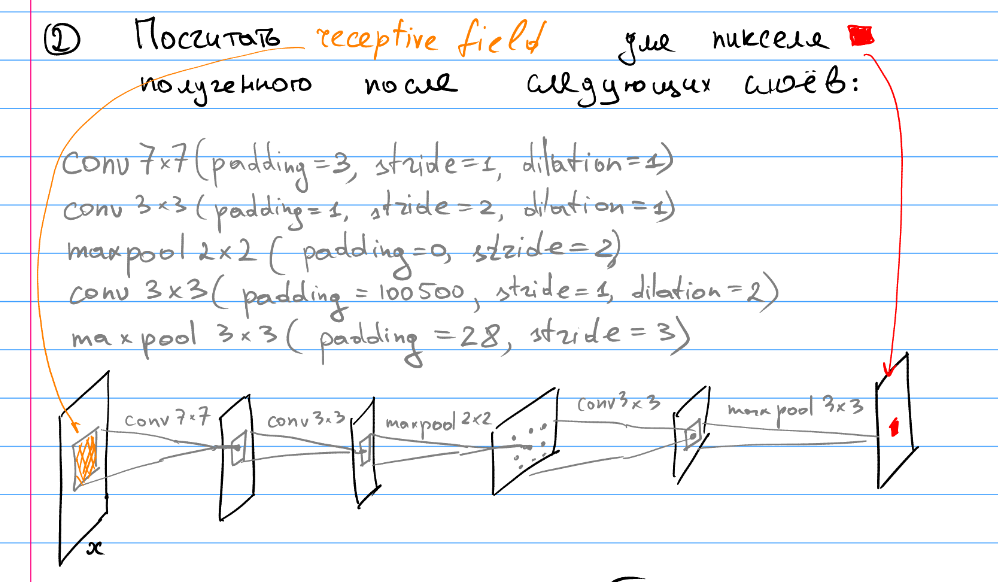 ② Посчитать receptive field для пикселя
полученного после следующих слоёв:
conv 7×7 (padding=3, stride=1, dilation=1)
conv 3×3 (padding=1, stride=2, dilation=1)
maxpool 2×2 ( padding=0, stride=2)
conv 3×3 ( padding = 100500, stride=1, dilation=2)
maxpool 3×3 ( padding =28, stride=3)
conv 7×7 conv 3×3 maxpool 2×2 conv 3×3 maxpool 3×3
x